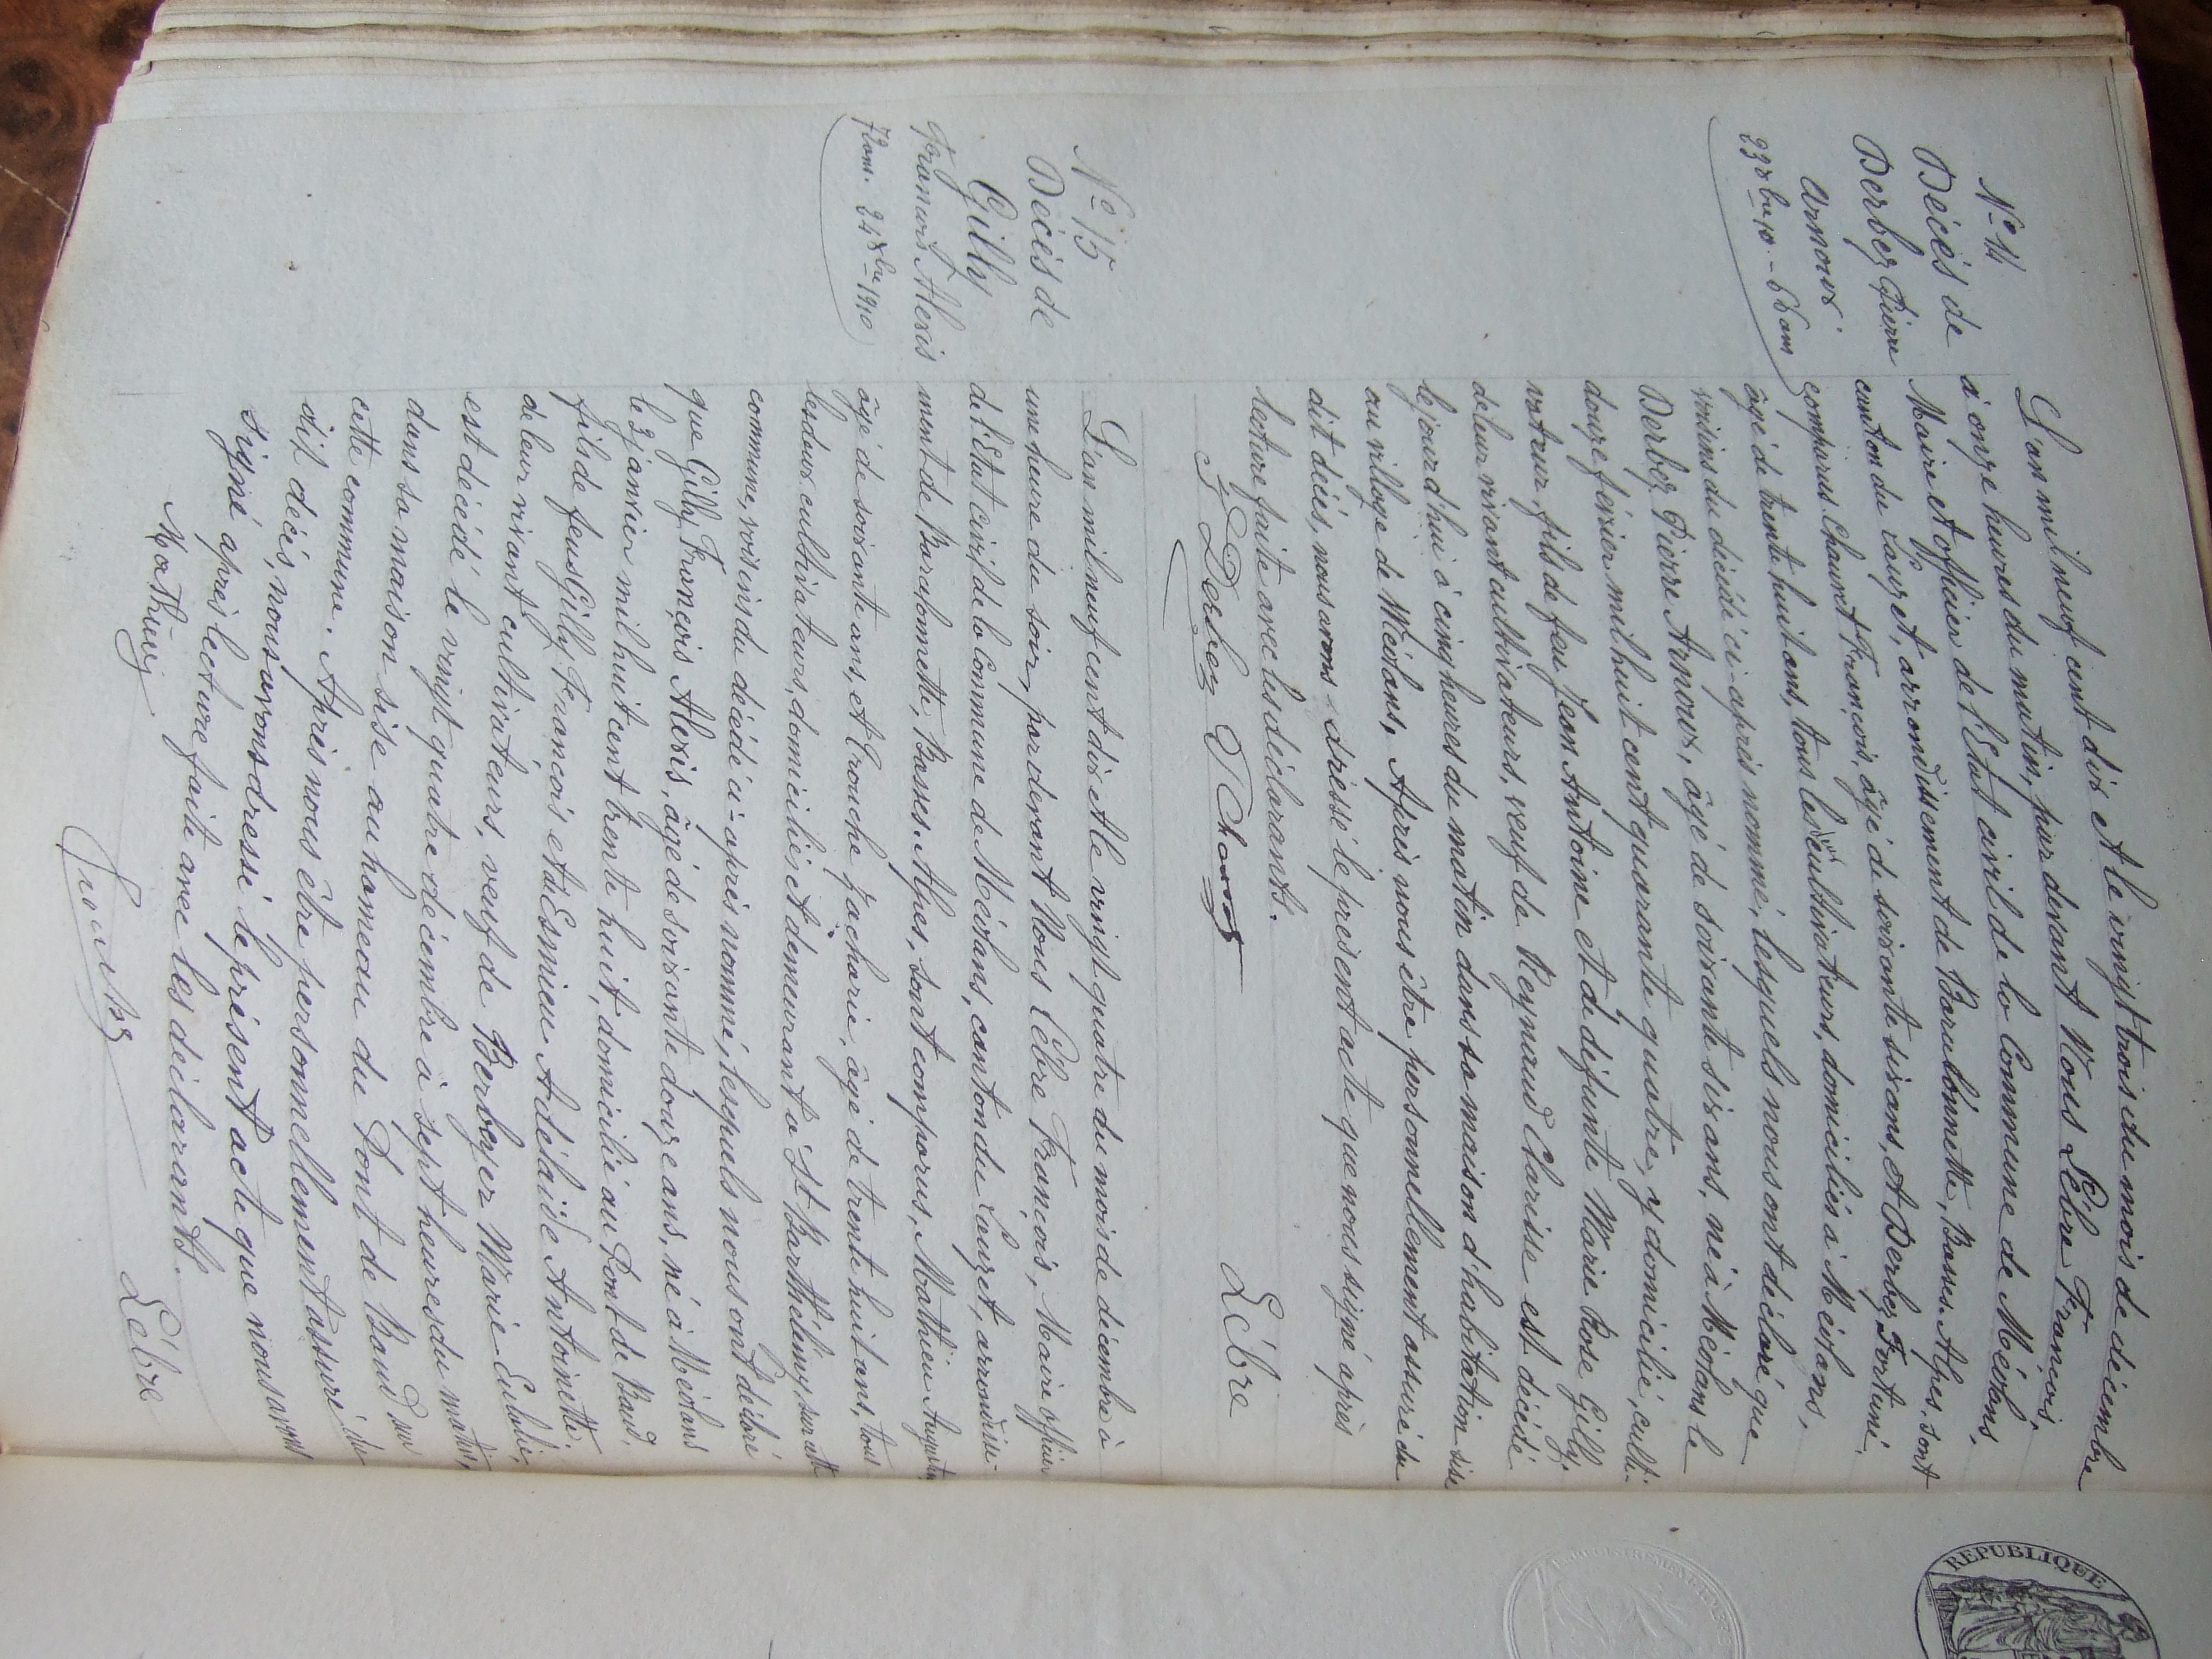 N° 14
Décès de
Derbez Pierre
Arnoux
23 Xbre 10. - 66 ans
L'an mil neuf cent dix et le vingt trois du mois de décembre
à onze heures du matin, par devant Nous Lèbre François,
Maire et officier de l'Etat civil de la Commune de Méolans,
canton du Lauzet, arrondissement de Barcelonnette, Basses-Alpes. sont
comparus Chauvet François, âgé de soixante six ans, et Derbez Fortuné,
âgé de trente huit ans, tous les deux cultivateurs, domiciliés à Méolans,
voisins du décédé ci-après nommé; lesquels nous ont déclaré que
Derbez Pierre Arnoux, âgé de soixante six ans, né à Méolans le
douze février mil huit cent quarante quatre, y domicilié, culti-
vateur, fils de feu Jean Antoine et de défunte Marie Rose Gilly,
de leur vivant cultivateurs, veuf de Reynaud Clarisse est décédé
le jour d'hui à cinq heures du matin dans sa maison d'habitation sise
au village de Méolans, Après nous être personnellement assuré du
dit décès, nous avons dressé le présent acte que nous signé après
lecture faite avec les déclarants.
F Derbez F Chauvet Lèbre
N° 15
Décès de
Gilly
François Alexis
72 ans. 24 Xbre 1910
L'an mil neuf cent dix et le vingt quatre du mois de décembre à
une heure du soir, par devant Nous Lèbre François, Maire officier
de l'Etat civil de la Commune de Méolans, canton du Lauzet, arrondisse-
ment de Barcelonnette, Basses-Alpes, sont comparus, Mathieu Augustin
âgé de soixante ans, et Trouche Zacharie, âgé de trente huit ans, tous
les deux cultivateurs, domiciliés et demeurant à St Barthélemy, sur cette
commune, voisins du décédé ci-après nommé; lesquels nous ont déclaré
que Gilly François Alexis, âgé de soixante douze ans, né à Méolans
le 3 janvier mil huit cent trente huit, domicilié au Pont de Baud,
fils de feus Gilly François et de Esmieu Adélaïde Antoinette,
de leur vivant cultivateurs, veuf de Berbeyer Marie Eulalie,
est décédé le vingt quatre décembre à sept heures du matin,
dans sa maison sise au hameau du Pont de Baud sur
cette commune. Après nous être personnellement assuré du
dit décès, nous avons dressé le présent acte que nous avons
signé après lecture faite avec les déclarants.
Mathieu Trouche Lèbre
REPUBLIQUE